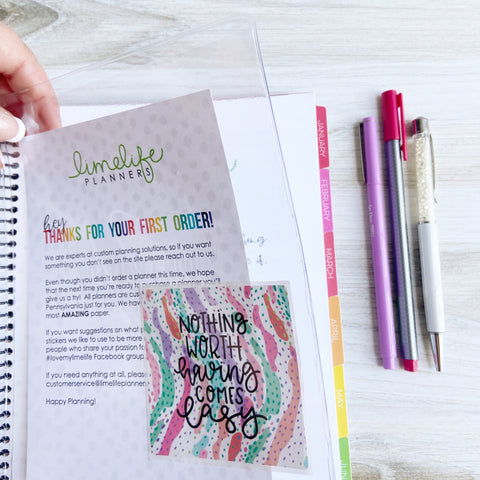 limelife
PLANNERS
hey
THANKS FOR YOUR FIRST ORDER!
We are experts at custom planning solutions, so if you want
something you don't see on the site please reach out to us.
Even though you didn't order a planner this time, we hope
that the next time you're ready to purchase a planner you'll
give us a try! All planners are cus
Pennsylvania just for you. We hav
most AMAZING paper.
If you want suggestions on what p
stickers we like to use to be more
people who share your passion fo
#lovemylimelife Facebook group
If you need anything at all, please
customerservice@limelifeplanner
Happy Planning!
NOTHING
WORTH
having
COMES
easy
JANUARY
FEBRUARY
MARCH
APRIL
MAY
JUNE